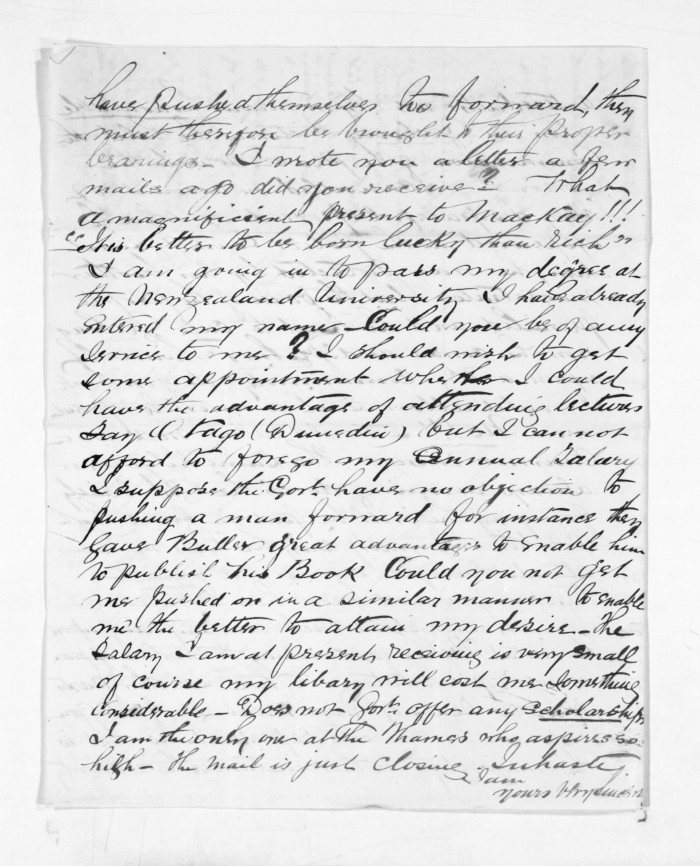 have pushed themselves to forward, they
must therefore be brought to their proper
bearings - I wrote you a letter a few
mails ago did you receive? What
a magnificient present to MacKay!!!
"It is better to be born lucky than rich"
I am going in to pass my degree at
the Newzealand University, I have already
entered my name - Could you be of any
service to me? I should wish to get
some appointment where I could
have the advantage of attending lectures
Say Otago (Dunedin) but I can not
afford to forego my annual Salary
I suppose the Govt. have no objection to
pushing a man forward for instance they
gave Buller great advantages to enable him
to publish his Book Could you not get
me pushed on in a similar manner to enable
me the better to attain my desire - The
Salary I am at present receiving is very small
of course my libary will cost me something
considerable - Does not Govt. offer any scholarships
I am the only one at the Thames who aspires so
high - The mail is just closing In haste
I am
yours Vry sincere